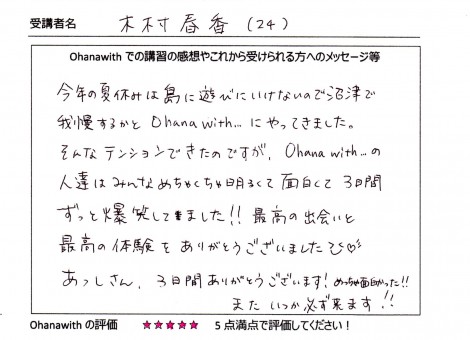 受講者名 木村春香(24)
Ohanawith での講習の感想やこれから受けられる方へのメッセージ等
今年の夏休みは島に遊びにいけないので沼津で
我慢するかと Ohana with… にやってきました。
そんなテンションできたのですが、Ohana with…の
人達はみんなめちゃくちゃ明るくて面白くて3日間
ずっと爆笑してました!! 最高の出会いと
最高の体験をありがとうございました
あっしさん、3日間ありがとうございます!めっちゃ面白かった!!
また いつか必ず来ます!!
Ohanawith の評価 ★★★★★ 5点満点で評価してください!